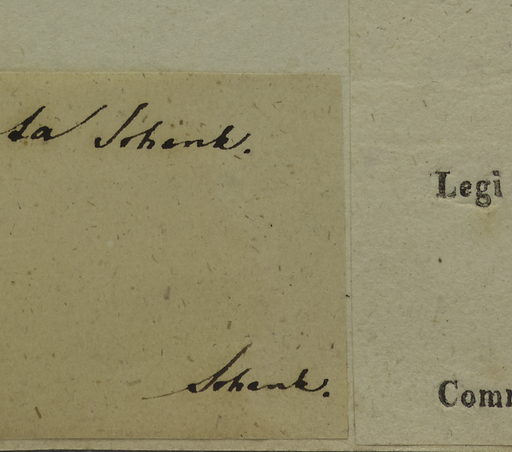 ta Schenk.
Legi
Schenk.
Comm